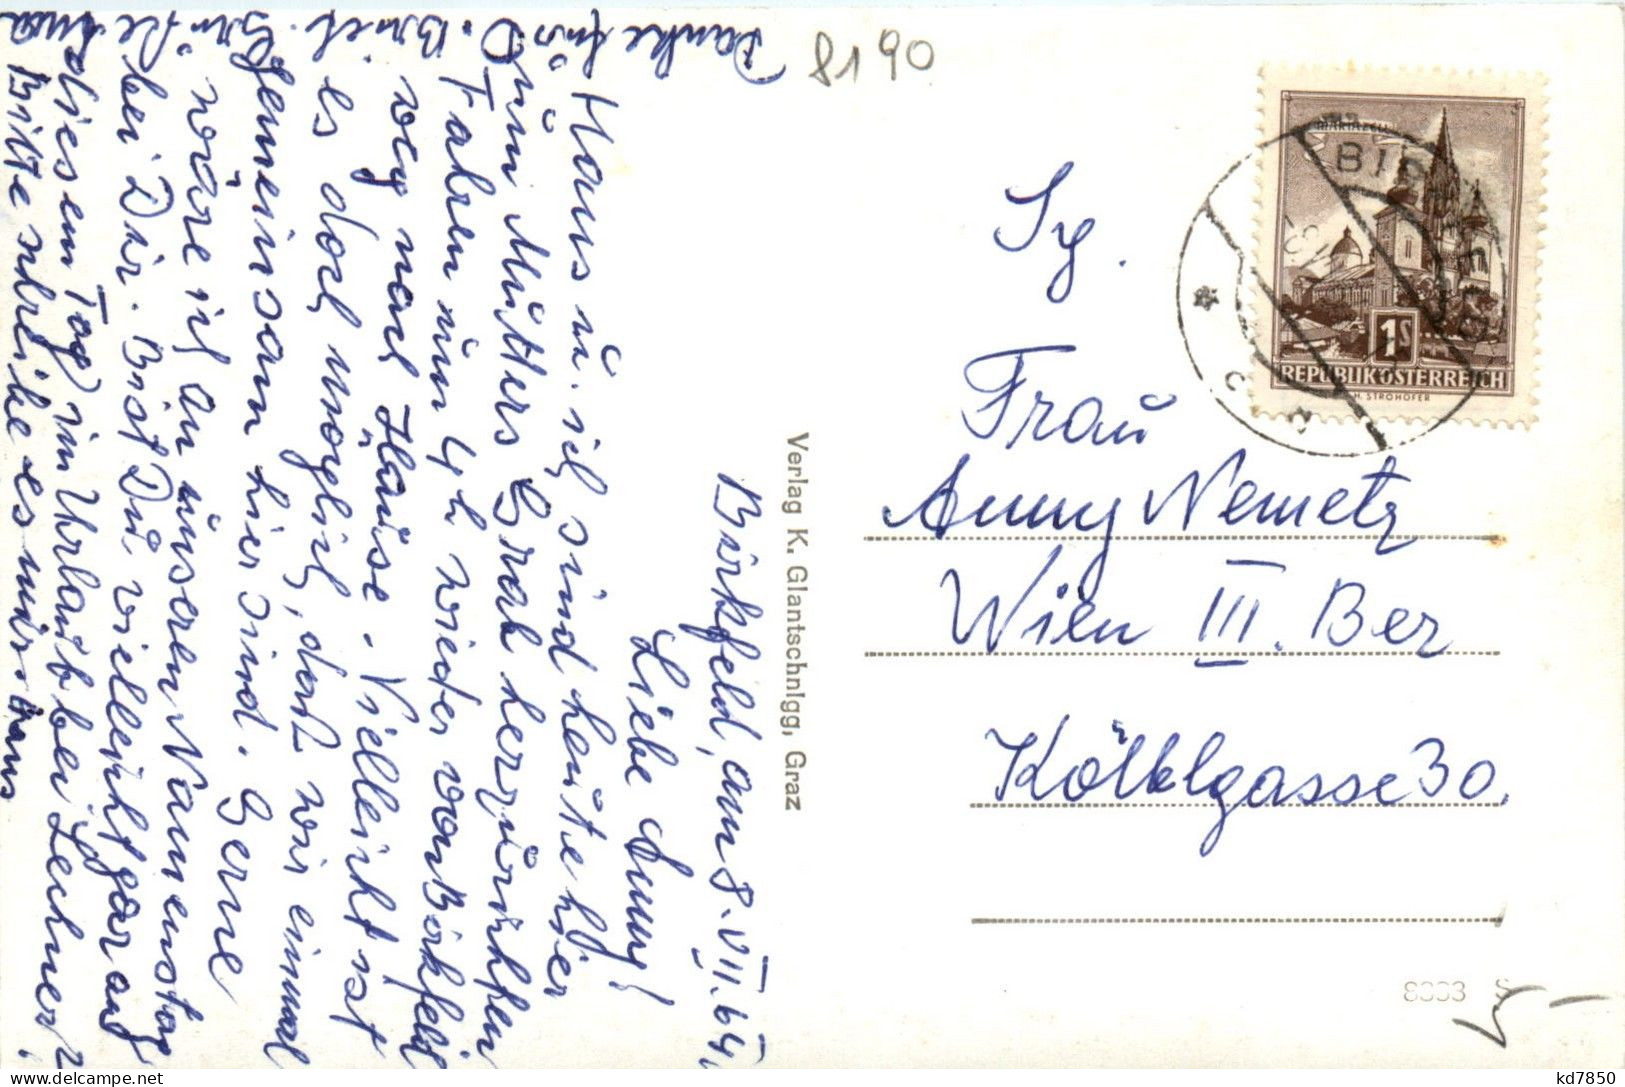 Birkfeld, am 8. VII. 64.
Liebe Anny!
Hans u. ich sind heute hier
um Mutters Grab herzurichten
Fahren um 4h wieder von Birkfeld
weg nach Hause. Vielleicht ist
es doch möglich, daß wir einmal
gemeinsam hier sind. Gerne
wäre ich an unseren Namenstag
bei Dir. Bist Du vielleicht gar an
diesem Tag im Urlaub bei Lechner,
Bitte schreibe es mir.
Danke für
D. Brief.
Hans
Verlag K. Glantschnigg, Graz
8190
MARIAZELL
1S
REPUBLIK ÖSTERREICH
H. STROHOFER
BIRKFELD
Sg.
Frau
Anny Nemetz
Wien III. Ber
Kölblgasse 30.
8333
kd7850